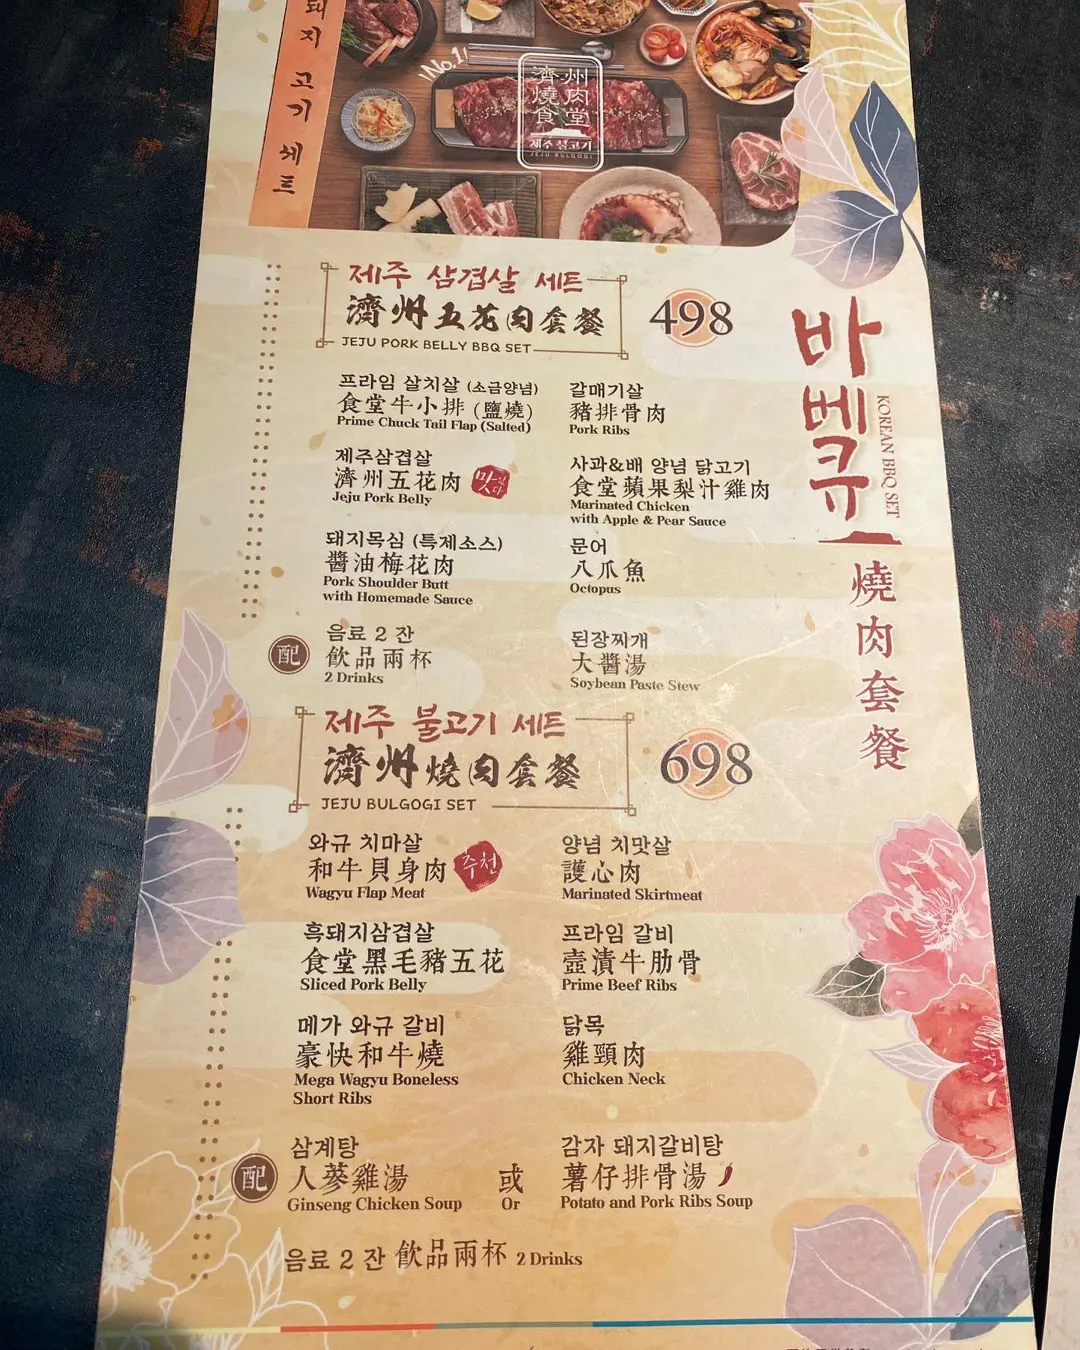 돼지 고기 세트
No.1
濟州
燒肉
食堂
제주 불고기
JEJU BULGOGI
제주 삼겹살 세트
濟州五花肉套餐
JEJU PORK BELLY BBQ SET
498
프라임 살치살 (소금양념)
食堂牛小排 (鹽燒)
Prime Chuck Tail Flap (Salted)
갈매기살
豬排骨肉
Pork Ribs
제주삼겹살
濟州五花肉
Jeju Pork Belly
맛있다
사과&배 양념 닭고기
食堂蘋果梨汁雞肉
Marinated Chicken
with Apple & Pear Sauce
돼지목심 (특제소스)
醬油梅花肉
Pork Shoulder Butt
with Homemade Sauce
문어
八爪魚
Octopus
配
음료 2 잔
飲品兩杯
2 Drinks
된장찌개
大醬湯
Soybean Paste Stew
바베큐
KOREAN BBQ SET
燒肉套餐
제주 불고기 세트
濟州燒肉套餐
JEJU BULGOGI SET
698
와규 치마살
和牛貝身肉
Wagyu Flap Meat
추천
양념 치맛살
護心肉
Marinated Skirtmeat
흑돼지삼겹살
食堂黑毛豬五花
Sliced Pork Belly
프라임 갈비
壺漬牛肋骨
Prime Beef Ribs
메가 와규 갈비
豪快和牛燒
Mega Wagyu Boneless
Short Ribs
닭목
雞頸肉
Chicken Neck
配
삼계탕
人蔘雞湯
Ginseng Chicken Soup
或
Or
감자 돼지갈비탕
薯仔排骨湯
Potato and Pork Ribs Soup
음료 2 잔 飲品兩杯 2 Drinks